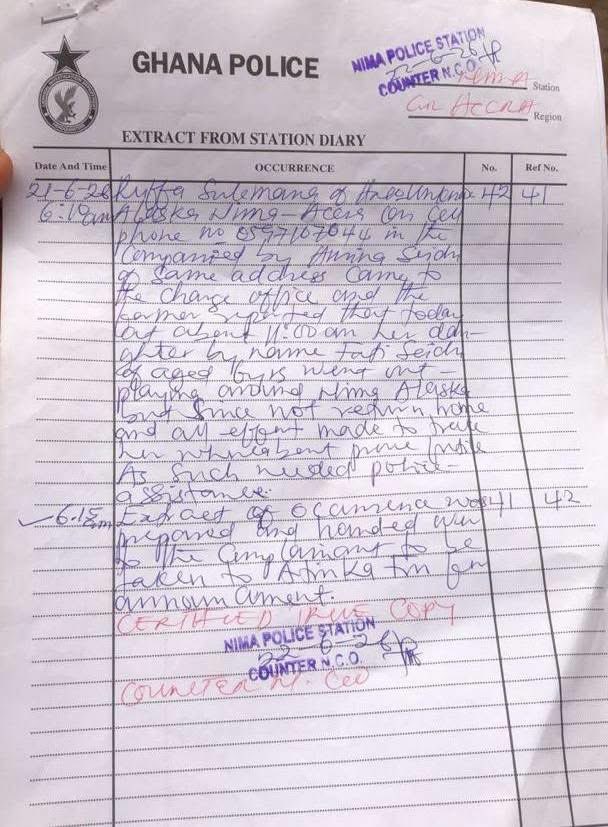 GHANA POLICE
NIMA POLICE STATION
22-6-26
COUNTER N.C.O.
NIMA Station
Gr. ACCRA Region
EXTRACT FROM STATION DIARY
Date And Time OCCURRENCE No. Ref No.
21-6-26 Sulemana of 42 41
Alaska Nima-Accra on Cell
phone no. 0597167044 in the
companied by Amina Seidu
of same address came to
the charge office and the
former reported that today
at about 11:00am her dau-
ghter by name Fati Seidu
of aged went out
playing around Nima Alaska
but since not return home
and all effort made to trace
her whereabout prove futile
As such needed police
assistance.
Extract of occurrence was 41 42
prepared and handed over
to the complainant to be
taken to Atinka for
announcement.
CERTIFIED TRUE COPY
NIMA POLICE STATION
22-6-26
COUNTER N.C.O.
COUNTER N.C.O